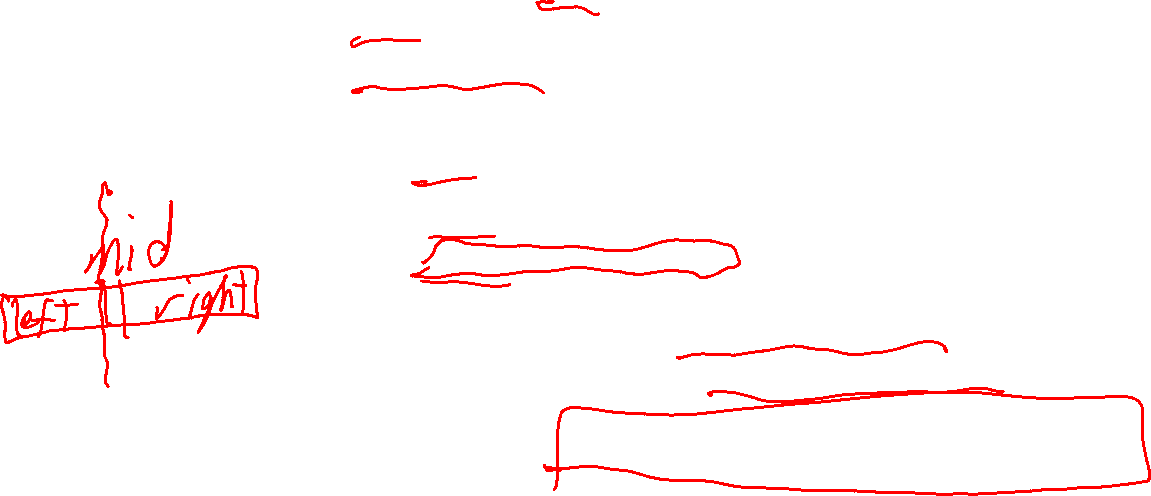 mid
left right